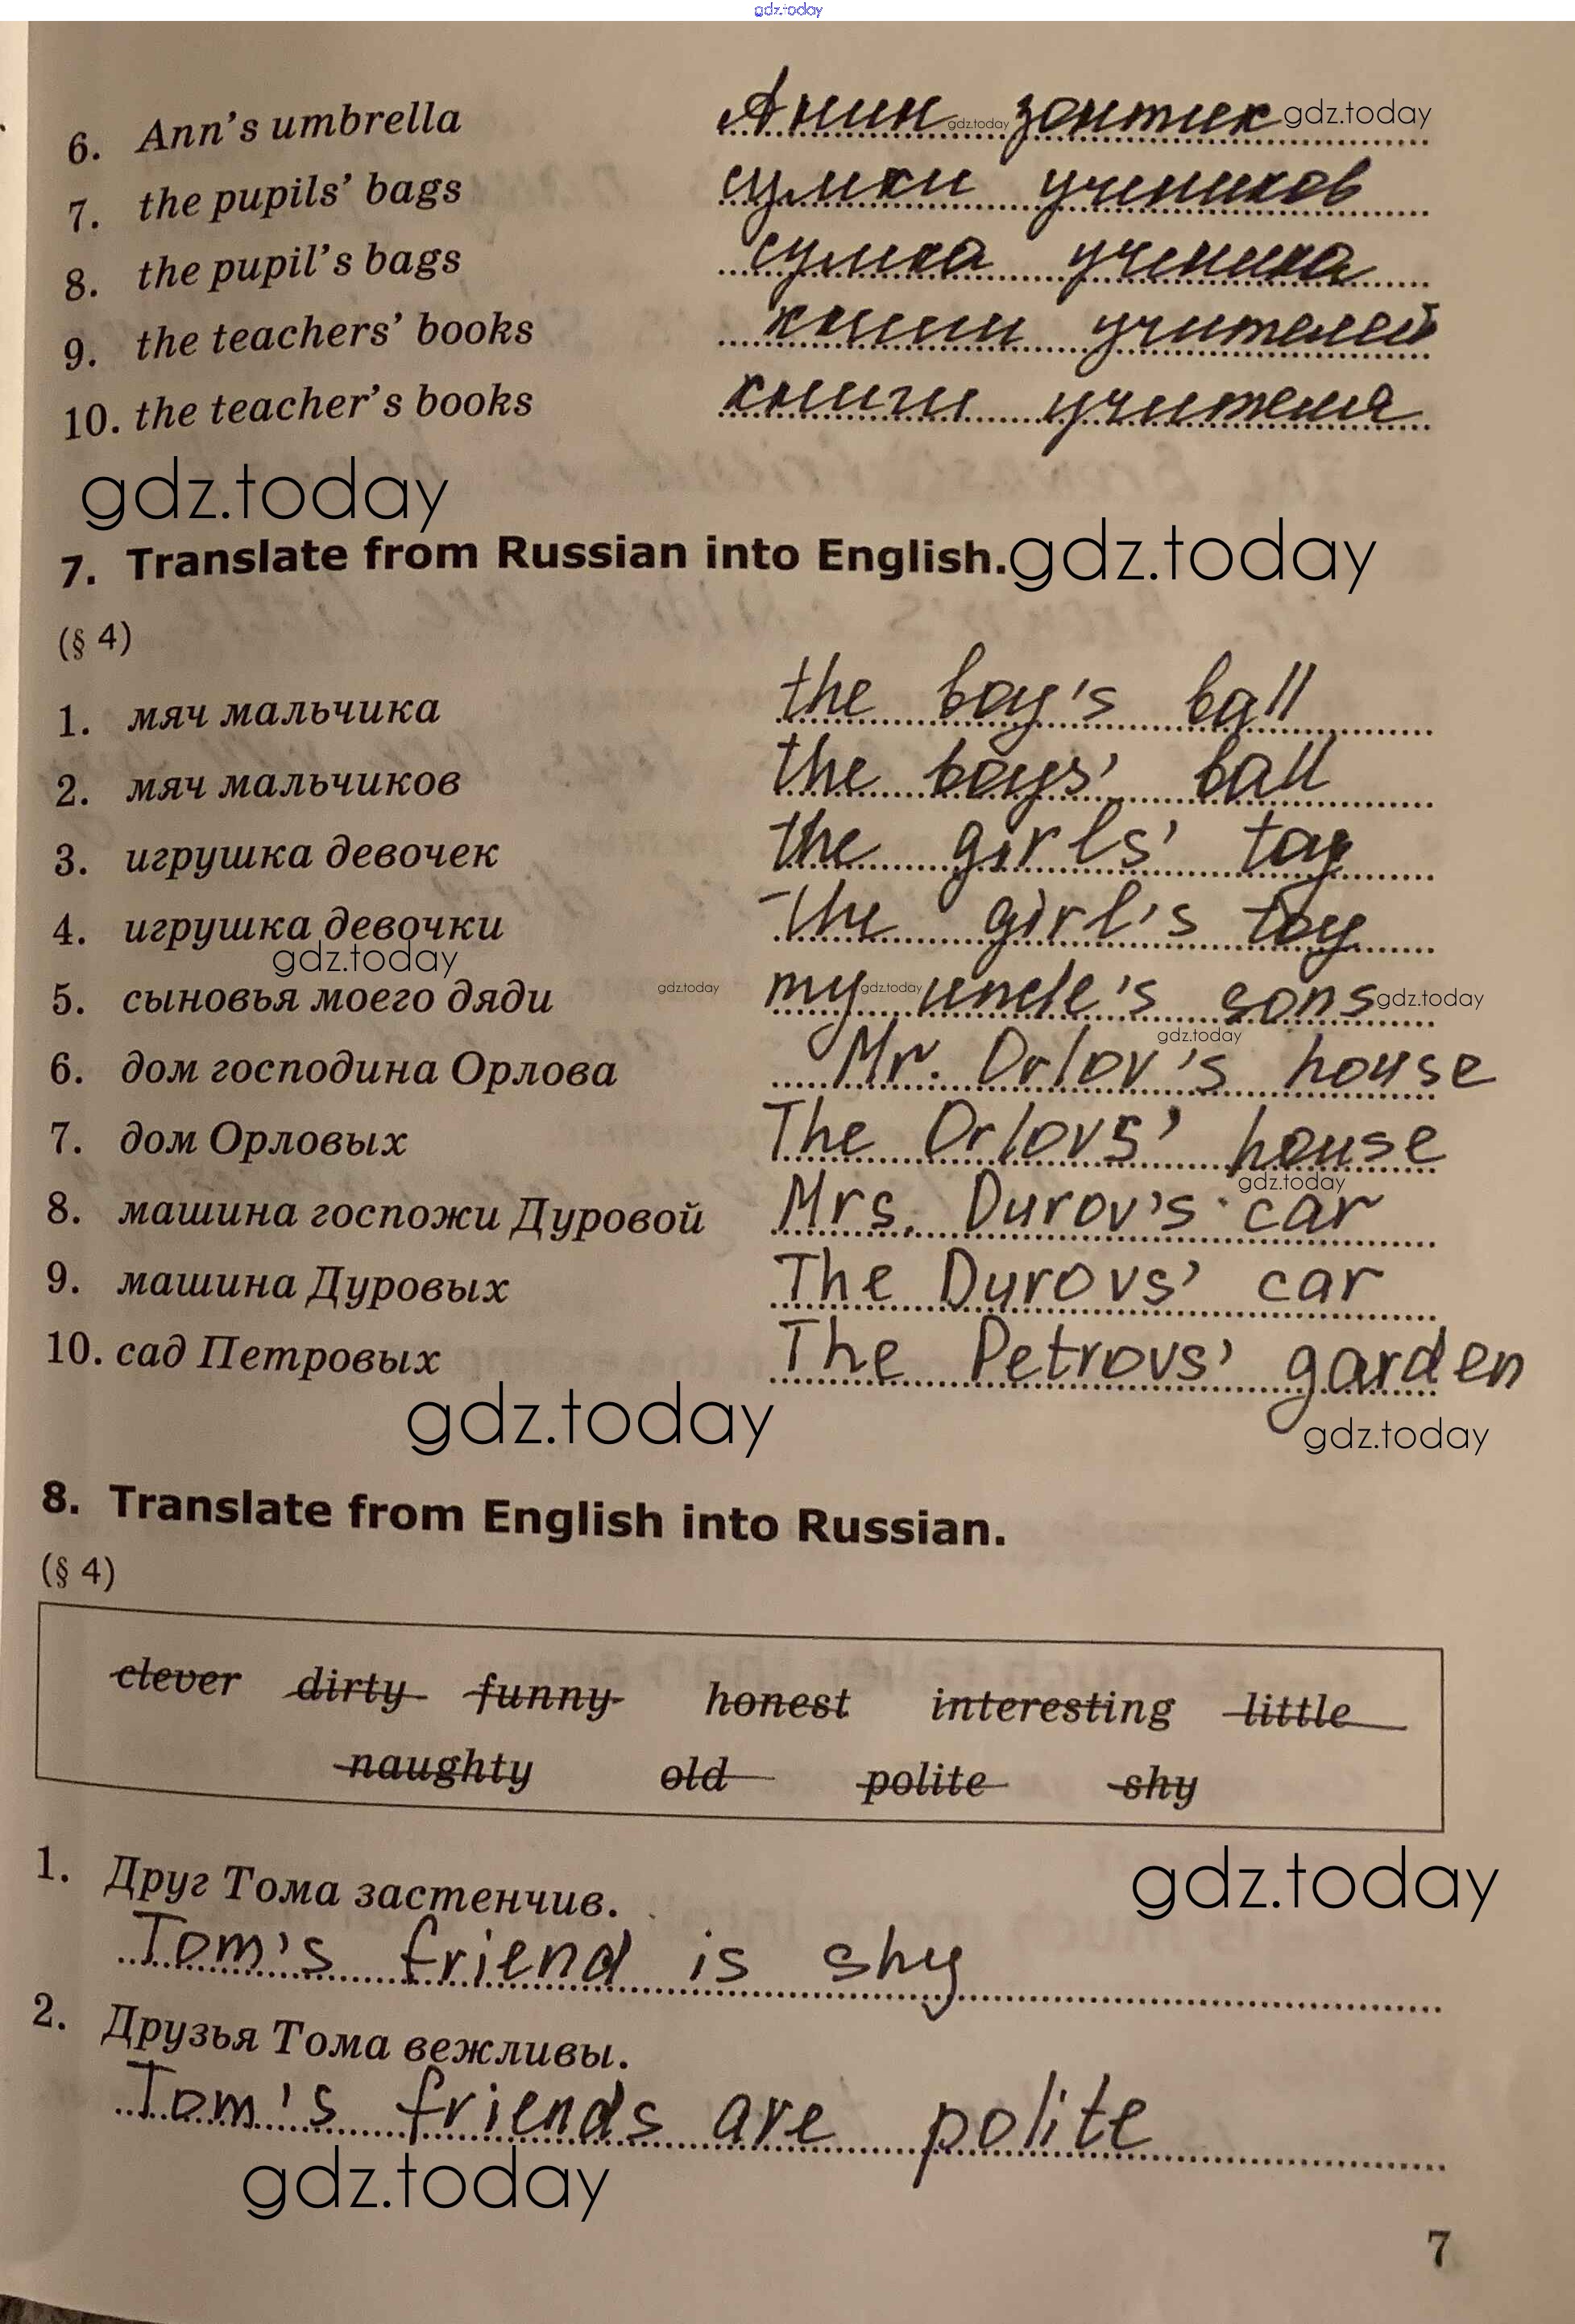 gdz.today
6. Ann's umbrella Анин gdz.today зонтик gdz.today
7. the pupils' bags сумки учеников
8. the pupil's bags сумка ученика
9. the teachers' books книги учителей
10. the teacher's books книги учителя
gdz.today
7. Translate from Russian into English. gdz.today
(§ 4)
1. мяч мальчика the boy's ball
2. мяч мальчиков the boys' ball
3. игрушка девочек the girls' toy
4. игрушка девочки The girl's toy
gdz.today
5. сыновья моего дяди gdz.today my gdz.today uncle's sons gdz.today
gdz.today
6. дом господина Орлова Mr. Orlov's house
7. дом Орловых The Orlovs' house
gdz.today
8. машина госпожи Дуровой Mrs. Durov's car
9. машина Дуровых The Durovs' car
10. сад Петровых The Petrovs' garden
gdz.today gdz.today
8. Translate from English into Russian.
(§ 4)
clever dirty funny honest interesting little
naughty old polite shy
1. Друг Тома застенчив. gdz.today
Tom's friend is shy
2. Друзья Тома вежливы.
Tom's friends are polite
gdz.today
7